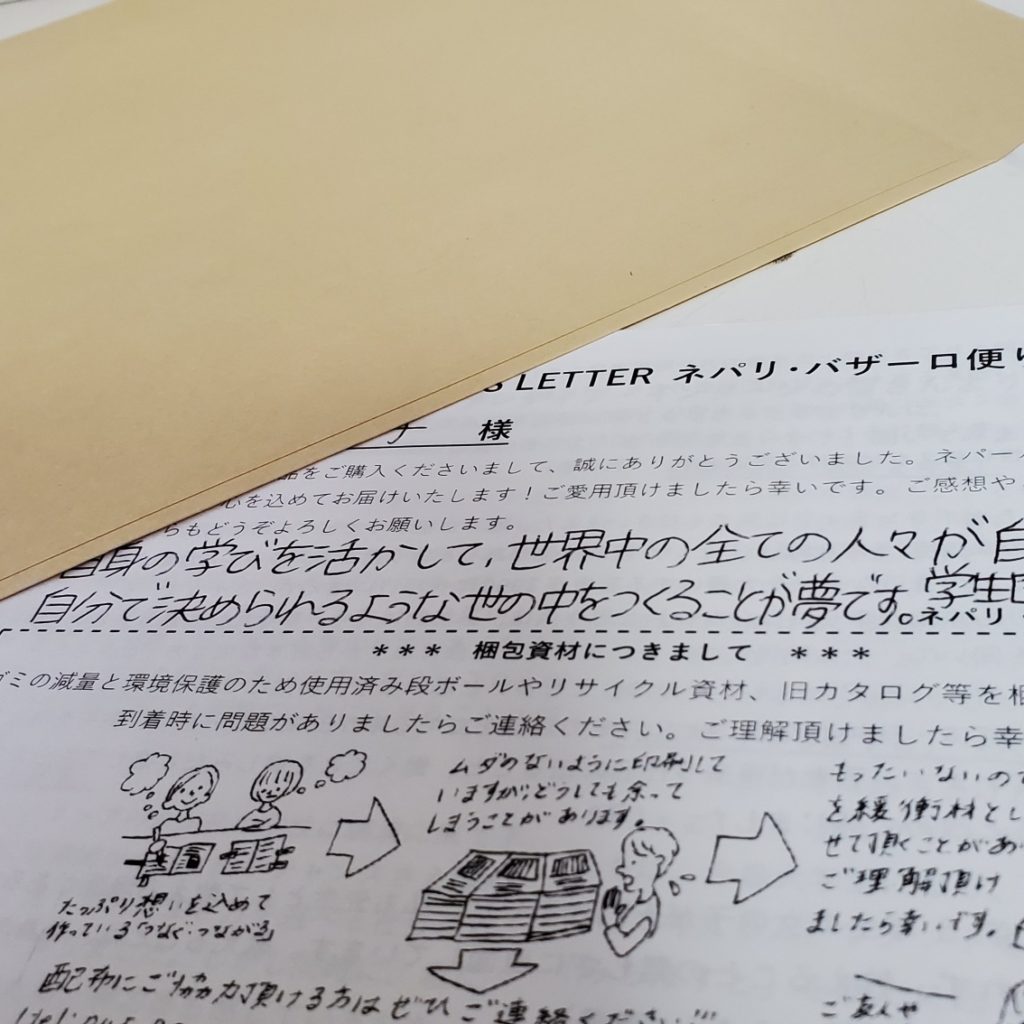 LETTER ネパリ・バザーロ便り
様
品をご購入くださいまして、誠にありがとうございました。ネパール
心を込めてお届けいたします！ご愛用頂けましたら幸いです。ご感想や
らもどうぞよろしくお願いします。
自身の学びを活かして、世界中の全ての人々が自
自分で決められるような世の中をつくることが夢です。学生
ネパリ・
＊＊＊ 梱包資材につきまして ＊＊＊
ゴミの減量と環境保護のため使用済み段ボールやリサイクル資材、旧カタログ等を梱
到着時に問題がありましたらご連絡ください。ご理解頂けましたら幸
たっぷり想いを込めて
作っている「つなぐ・つながる」
ムダのないように印刷して
いますが、どうしても余って
しまうことがあります。
もったいないので
を緩衝材とし
せて頂くことがあ
ご理解頂け
ましたら幸いです。
配布にご協力頂ける方はぜひご連絡ください!!!
ご友人や